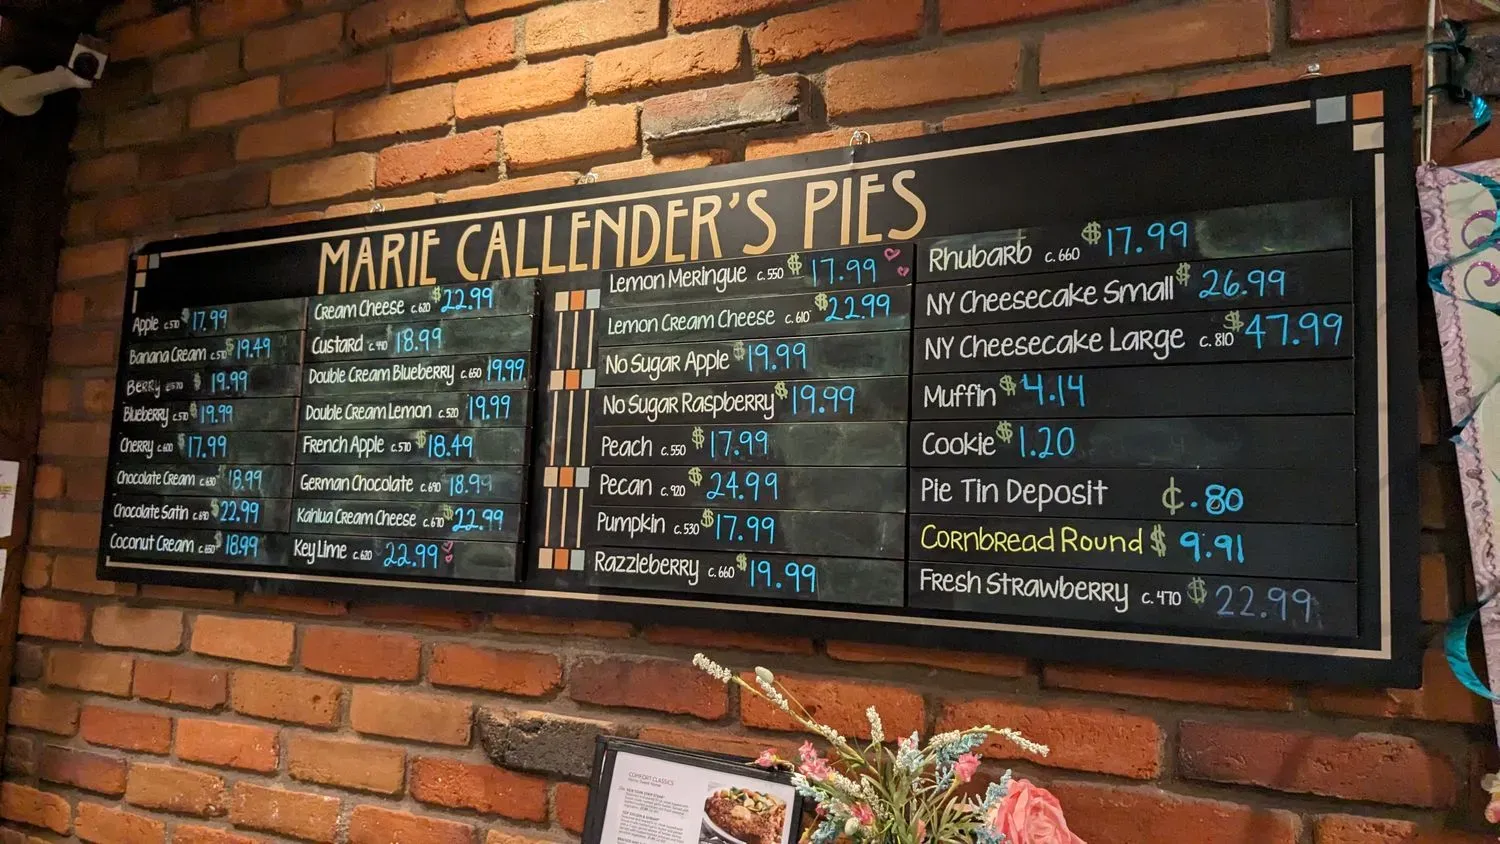 MARIE CALLENDER'S PIES
Apple c.570 $17.99
Banana Cream c.510 $19.49
Berry c.570 $19.99
Blueberry c.570 $19.99
Cherry c.600 $17.99
Chocolate Cream c.630 $18.99
Chocolate Satin c.690 $22.99
Coconut Cream c.650 $18.99
Cream Cheese c.620 $22.99
Custard c.440 18.99
Double Cream Blueberry c.650 19.99
Double Cream Lemon c.520 19.99
French Apple c.570 $18.49
German Chocolate c.690 18.99
Kahlua Cream Cheese c.670 $22.99
Key Lime c.620 22.99
Lemon Meringue c.550 $17.99
Lemon Cream Cheese c.610 $22.99
No Sugar Apple $19.99
No Sugar Raspberry $19.99
Peach c.550 $17.99
Pecan c.920 $24.99
Pumpkin c.530 $17.99
Razzleberry c.660 $19.99
Rhubarb c.660 $17.99
NY Cheesecake Small $26.99
NY Cheesecake Large c.810 $47.99
Muffin $4.14
Cookie $1.20
Pie Tin Deposit ¢.80
Cornbread Round $9.91
Fresh Strawberry c.470 $22.99
COMFORT CLASSICS